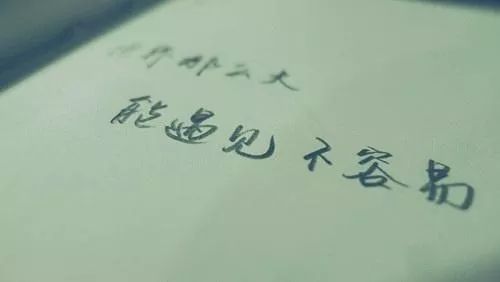 世界那么大
能遇见不容易